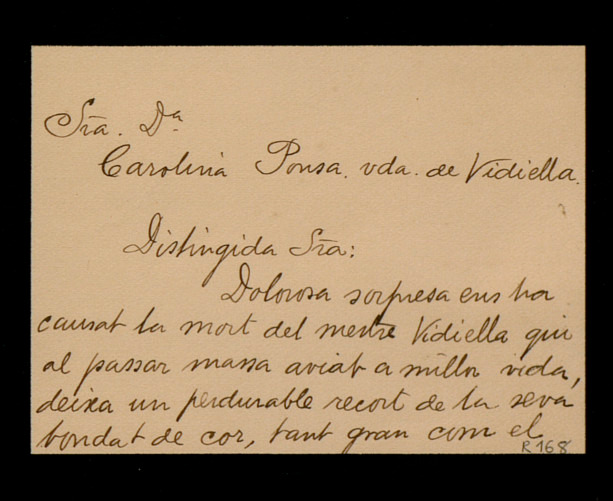 Sra. Dª
Carolina Ponsa. vda. de Vidiella.
Distingida Sra:
Dolorosa sorpresa ens ha
causat la mort del mestre Vidiella qui
al passar massa aviat a millor vida,
deixa un perdurable recort de la seva
bondat de cor, tant gran com el
R168